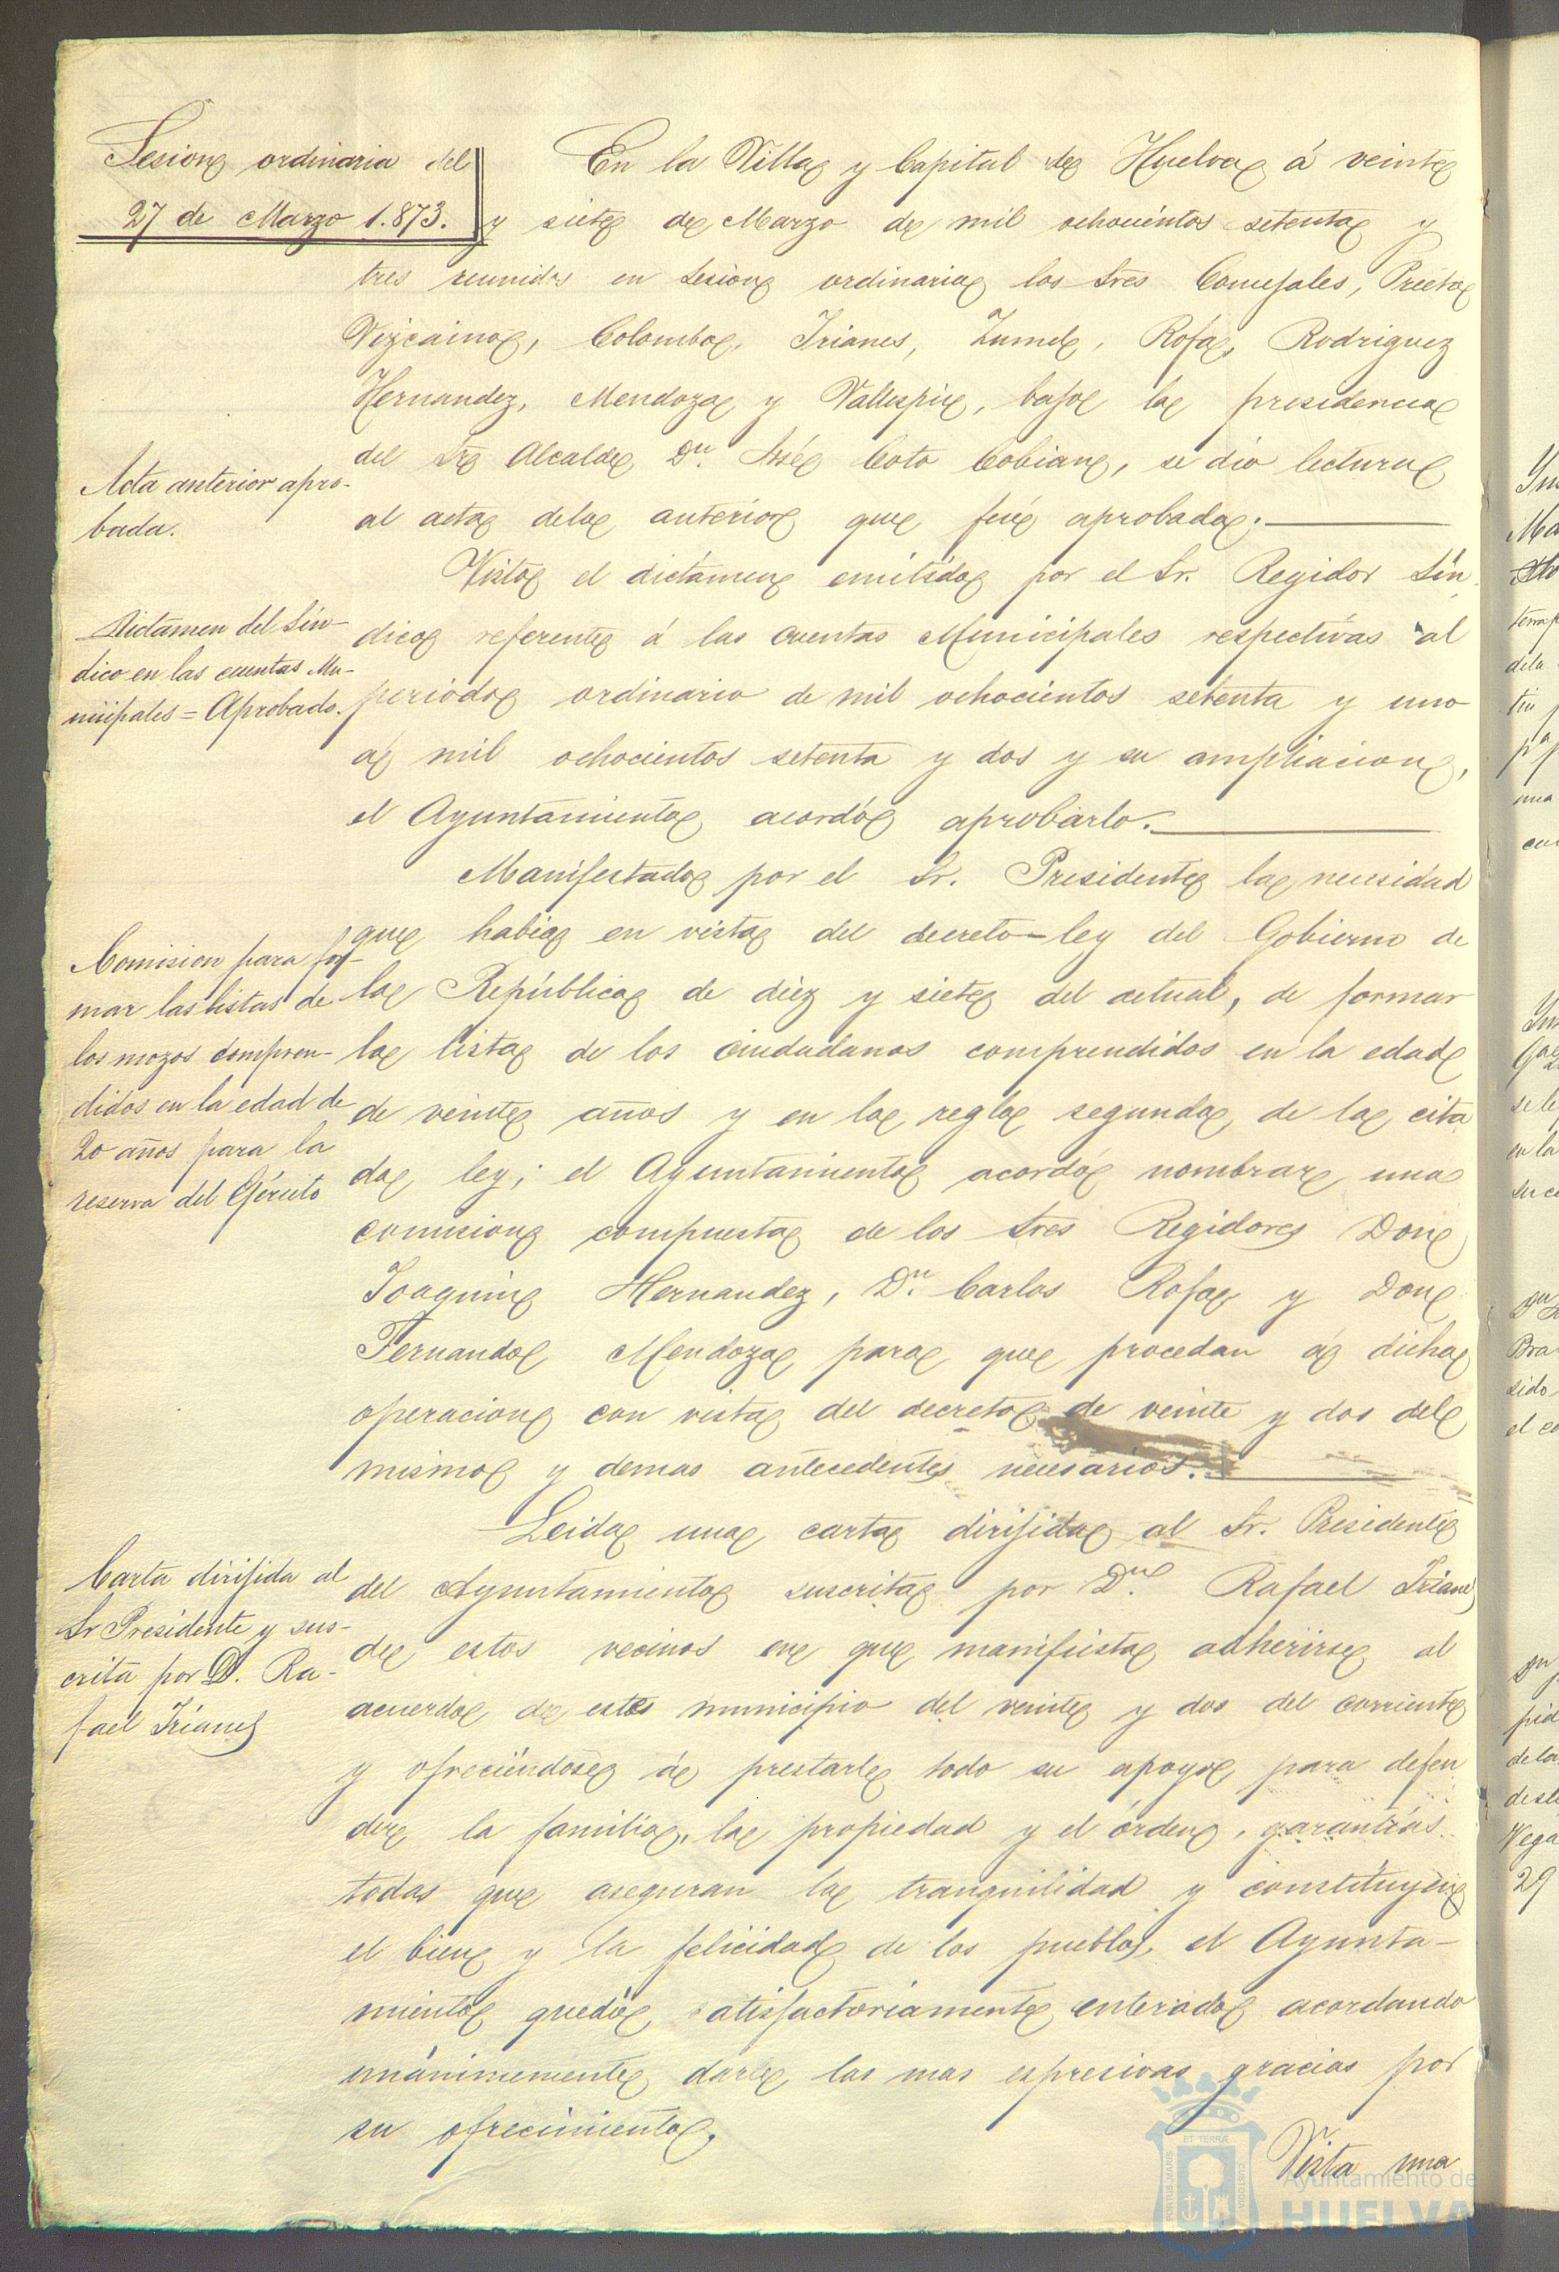 Sesion ordinaria del
27 de Marzo 1.873.
En la Villa y Capital de Huelva á veinte
y siete de Marzo de mil ochocientos setenta y
tres reunidos en sesion ordinaria los Sres Concejales, Prieto
Vizcaino, Colombo, Trianes, Zumel, Rofa, Rodriguez
Hernandez, Mendoza y Vallespin, bajo la presidencia
del Sr Alcalde Dn. José Coto Cobian, se dió lectura
al acta dela anterior que fué aprobada.
Acta anterior apro-
bada.
Visto el dictámen emitido por el Sr. Regidor Sín
dico referente á las cuentas Municipales respectivas al
periodo ordinario de mil ochocientos setenta y uno
á mil ochocientos setenta y dos y su ampliacion,
el Ayuntamiento acordó aprobarlo.
Dictamen del Sín-
dico en las cuentas Mu-
nicipales = Aprobado.
Manifestado por el Sr. Presidente la necesidad
que habia en vista del decreto-ley del Gobierno de
la República de diez y siete del actual, de formar
la lista de los ciudadanos comprendidos en la edad
de veinte años y en la regla segunda de la cita
da ley; el Ayuntamiento acordó nombrar una
comision compuesta de los Sres Regidores Don
Joaquin Hernandez, Dn. Carlos Rofa y Don
Fernando Mendoza para que procedan á dicha
operacion con vista del decreto de veinte y dos del
mismo y demas antecedentes necesarios.
Comision para for-
mar las listas de
los mozos compren-
didos en la edad de
20 años para la
reserva del Ejército
Leida una carta dirijida al Sr. Presidente
del Ayuntamiento suscrita por Dn. Rafael Trianes
de estos vecinos en que manifiesta adherirse al
acuerdo de este municipio del veinte y dos del corriente
y ofreciéndose á prestarle todo su apoyo para defen
der la familia, la propiedad y el órden, garantías
todas que aseguran la tranquilidad y constituyen
el bien y la felicidad de los pueblos, el Ayunta-
miento quedó satisfactoriamente enterado acordando
unánimemente darle las mas espresivas gracias por
su ofrecimiento.
Carta dirijida al
Sr Presidente y sus-
crita por D. Ra-
fael Trianes
Vista una
PORTUS MARIS
ET TERRÆ
CUSTODIA
Ayuntamiento de
HUELVA